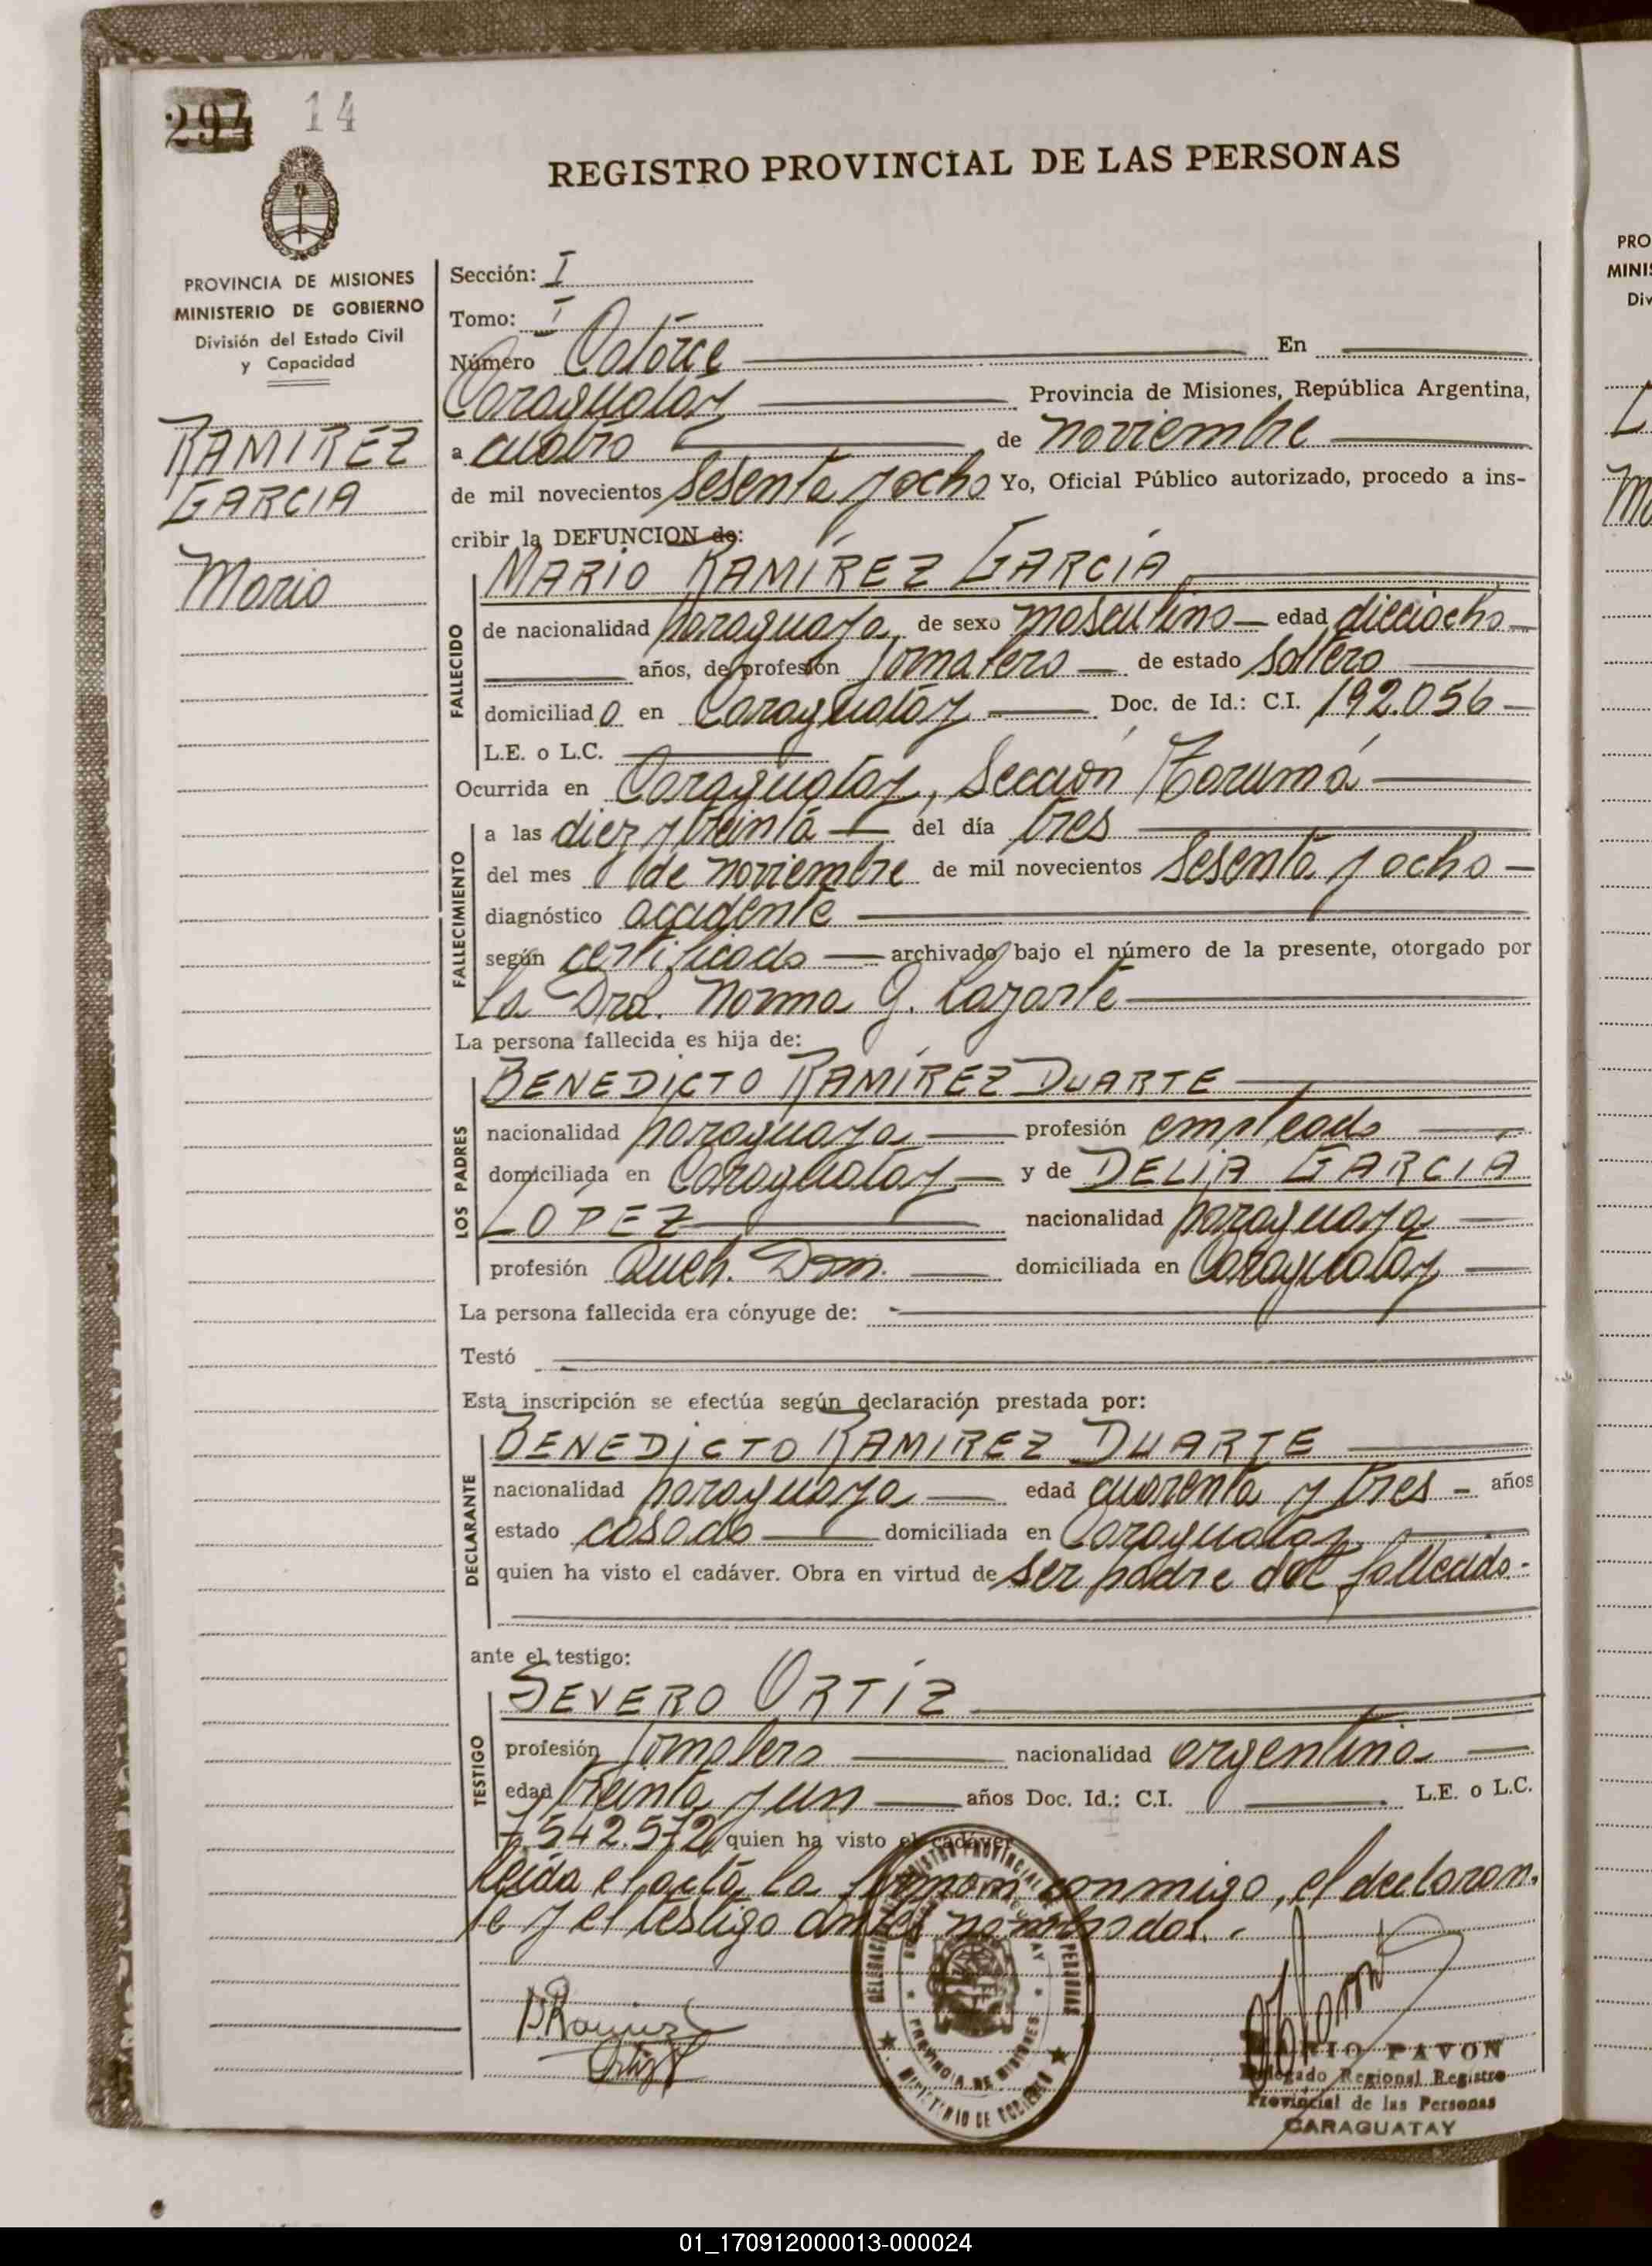 294 14
REGISTRO PROVINCIAL DE LAS PERSONAS
PROVINCIA DE MISIONES
MINISTERIO DE GOBIERNO
División del Estado Civil
y Capacidad
RAMIREZ
GARCIA
Mario
Sección: I
Tomo: I
Número Catorce En
Caraguatay Provincia de Misiones, República Argentina,
a cuatro de noviembre
de mil novecientos sesenta y ocho Yo, Oficial Público autorizado, procedo a ins-
cribir la DEFUNCION de:
FALLECIDO
MARIO RAMÍREZ GARCÍA
de nacionalidad paraguaya, de sexo masculino edad dieciocho
años, de profesión Jornalero de estado soltero
domiciliado en Caraguatay Doc. de Id.: C.I. 192.056
L.E. o L.C.
Ocurrida en Caraguatay, Sección Tarumá
FALLECIMIENTO
a las diez y treinta del día tres
del mes de noviembre de mil novecientos sesenta y ocho
diagnóstico accidente
según certificado archivado bajo el número de la presente, otorgado por
la Dra. Norma G. Lazarte
La persona fallecida es hija de:
LOS PADRES
BENEDICTO RAMÍREZ DUARTE
nacionalidad paraguaya profesión empleado
domiciliada en Caraguatay y de DELIA GARCIA
LOPEZ nacionalidad paraguaya
profesión Queh. Dom. domiciliada en Caraguatay
La persona fallecida era cónyuge de:
Testó
Esta inscripción se efectúa según declaración prestada por:
DECLARANTE
BENEDICTO RAMIREZ DUARTE
nacionalidad paraguaya edad cuarenta y tres años
estado casado domiciliada en Caraguatay
quien ha visto el cadáver. Obra en virtud de ser padre del fallecido.-
ante el testigo:
TESTIGO
SEVERO ORTÍZ
profesión Jornalero nacionalidad argentina
edad treinta y un años Doc. Id.: C.I. L.E. o L.C.
7.542.572 quien ha visto el cadáver
Leída el acta, la firman conmigo, el declaran-
te y el testigo antes nombrados.-
B. Ramirez
Ortiz
REGISTRO PROVINCIAL DE LAS PERSONAS
PROVINCIA DE MISIONES
MINISTERIO DE GOBIERNO
PAVON
Delegado Regional Registro
Provincial de las Personas
CARAGUATAY
PRO
MINIS
Div
01_170912000013-000024